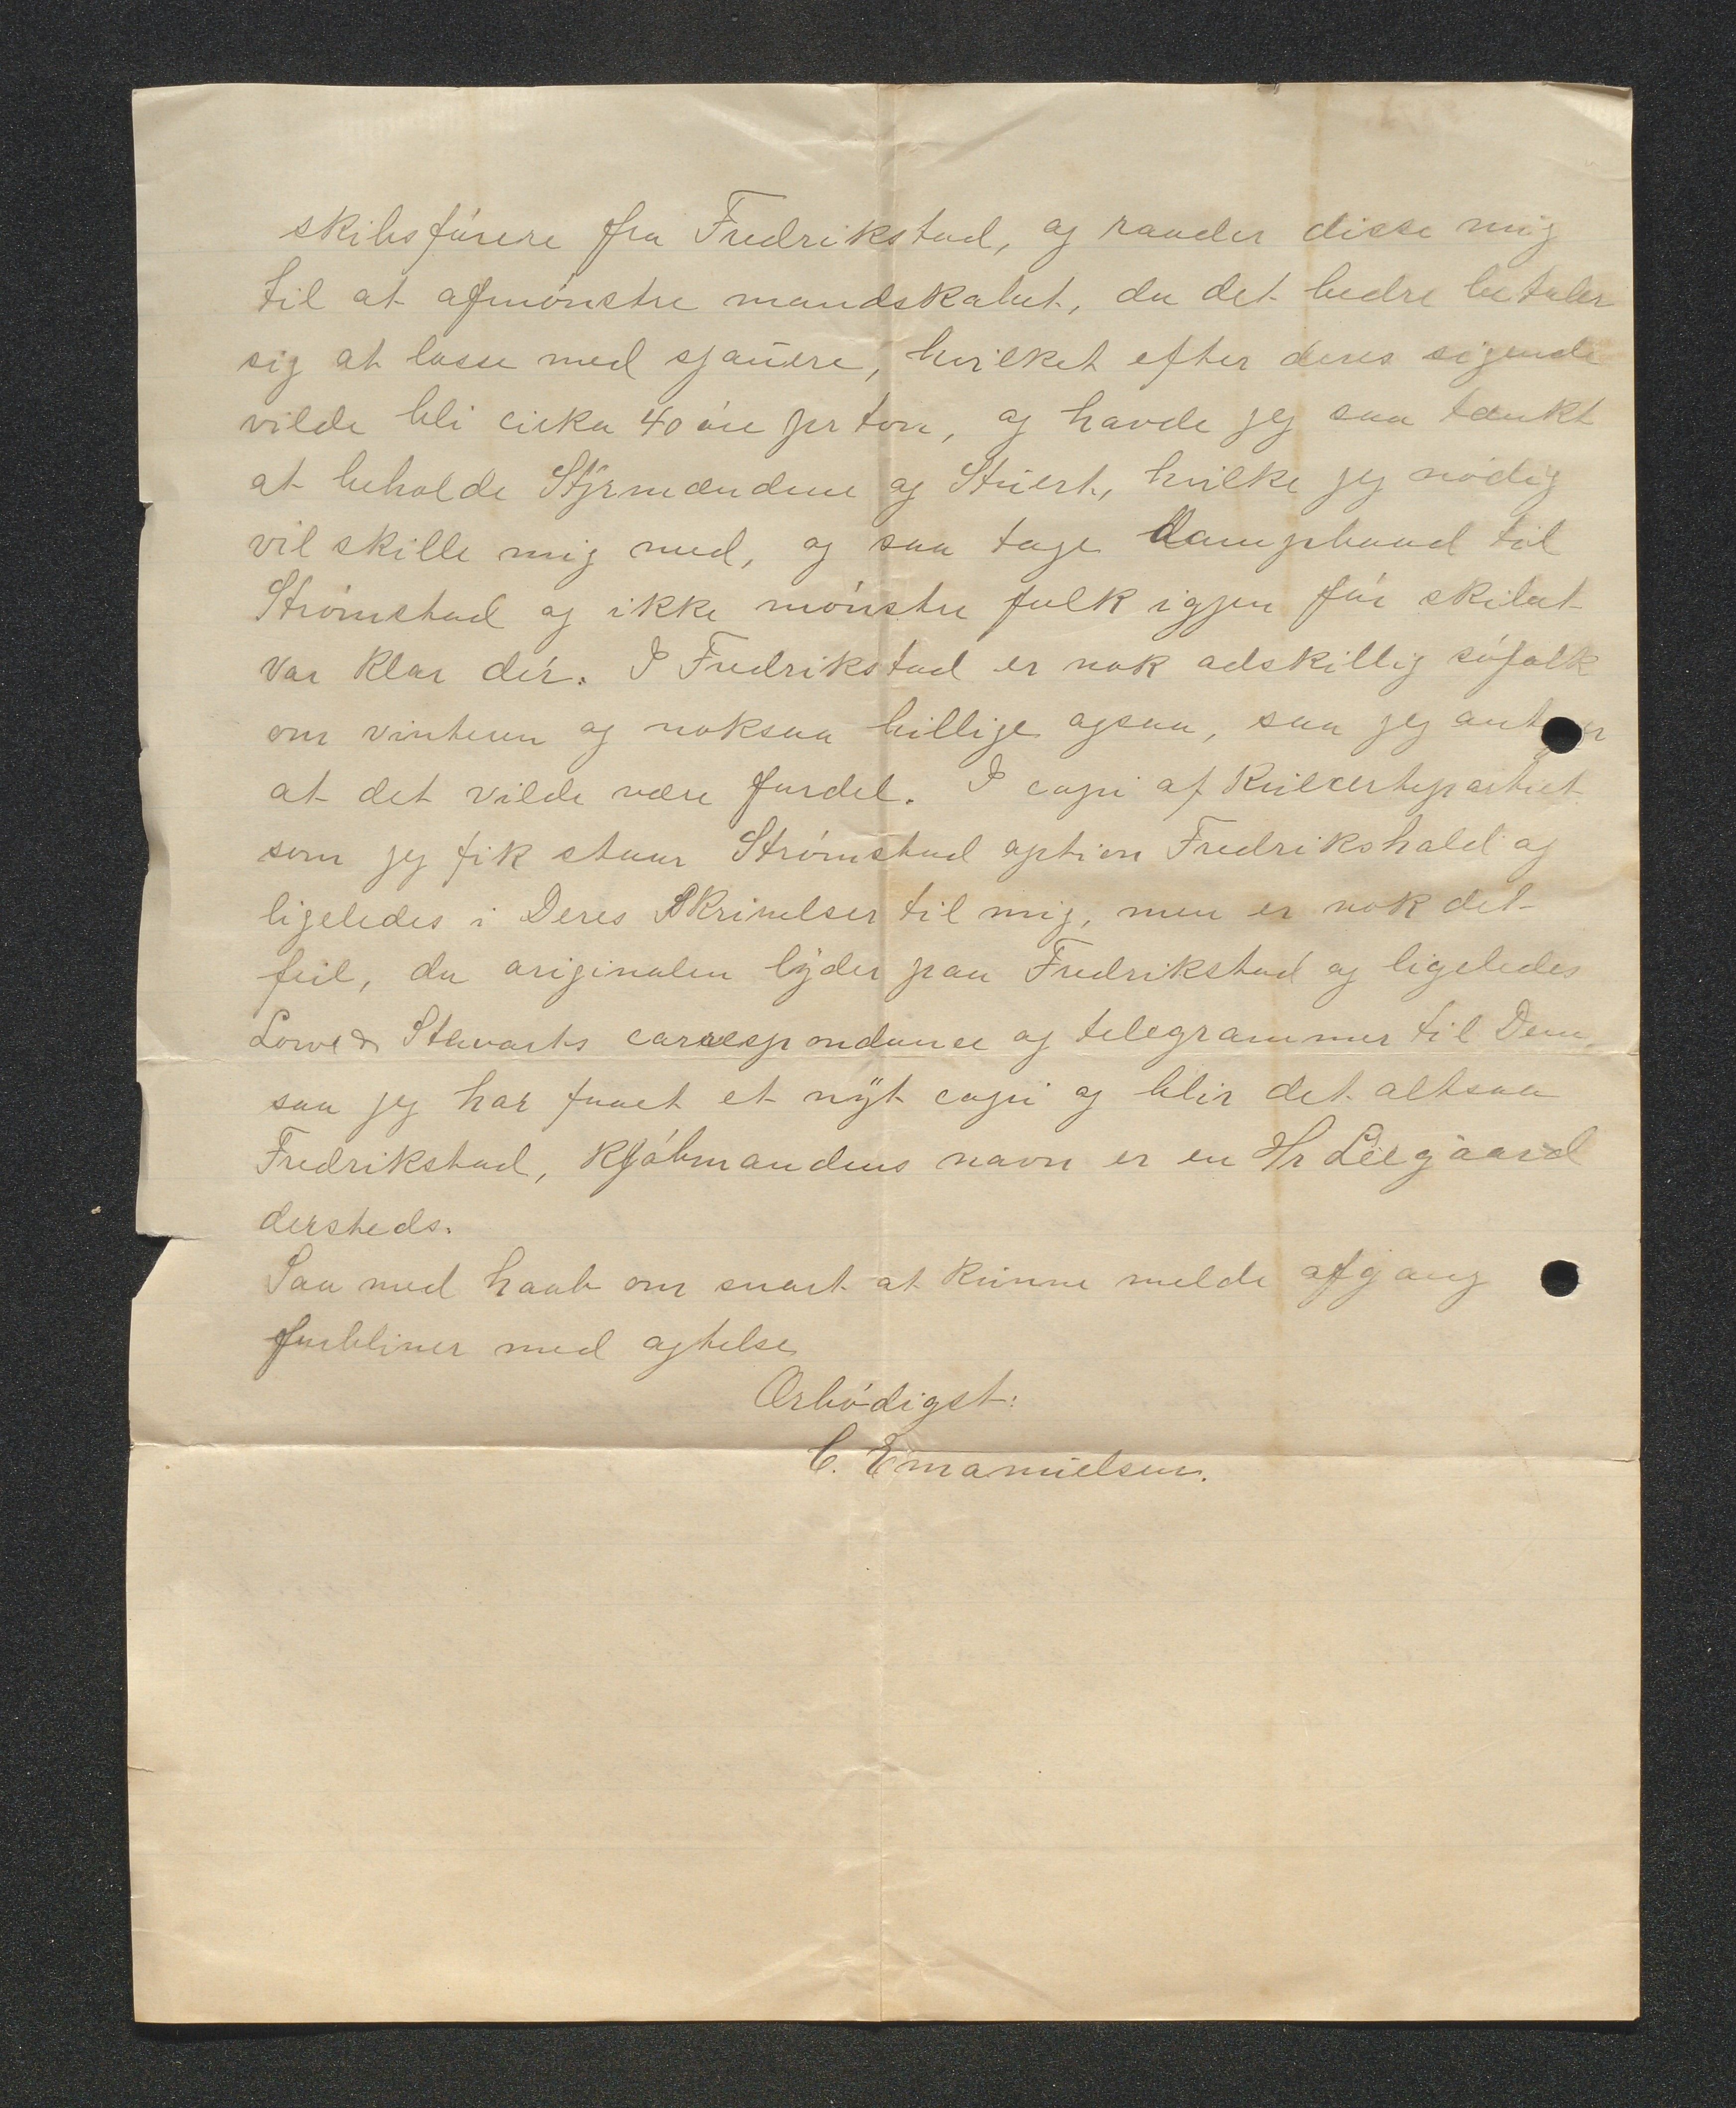 skibsförere fra Fredrikstad, og raader disse mig
til at afmönstre mandskabet, da det bedre betaler
sig at losse med sjauere, hvilket efter deres sigende
vilde bli cirka 40 öre pr ton, og havde jeg saa tænkt
at beholde Styrmændene og Stuert, hvilke jeg nödig
vil skille mig med, og saa tage Dampbaad til
Strömstad og ikke mönstre folk igjen för skibet
var klar dér. I Fredrikstad er nok adskillig söfolk
om vinteren og noksaa billige ogsaa, saa jeg
at det vilde være fordel. I copi af
som jeg fik staar Strömstad option Fredrikshald og
ligeledes i Deres Skrivelser til mig, men er nok det
feil, da originalen lyder paa Fredrikstad og ligeledes
Love & Stewarts correspondance og telegrammer til Dem,
saa jeg har faaet et nyt copi og blir det altsaa
Fredrikstad, Kjöbmandens navn er en Hr Liegaard
dersteds.
Saa med haab om snart at kunne melde afgang
forbliver med agtelse
Ærbödigst:
C. Emanuelsen.